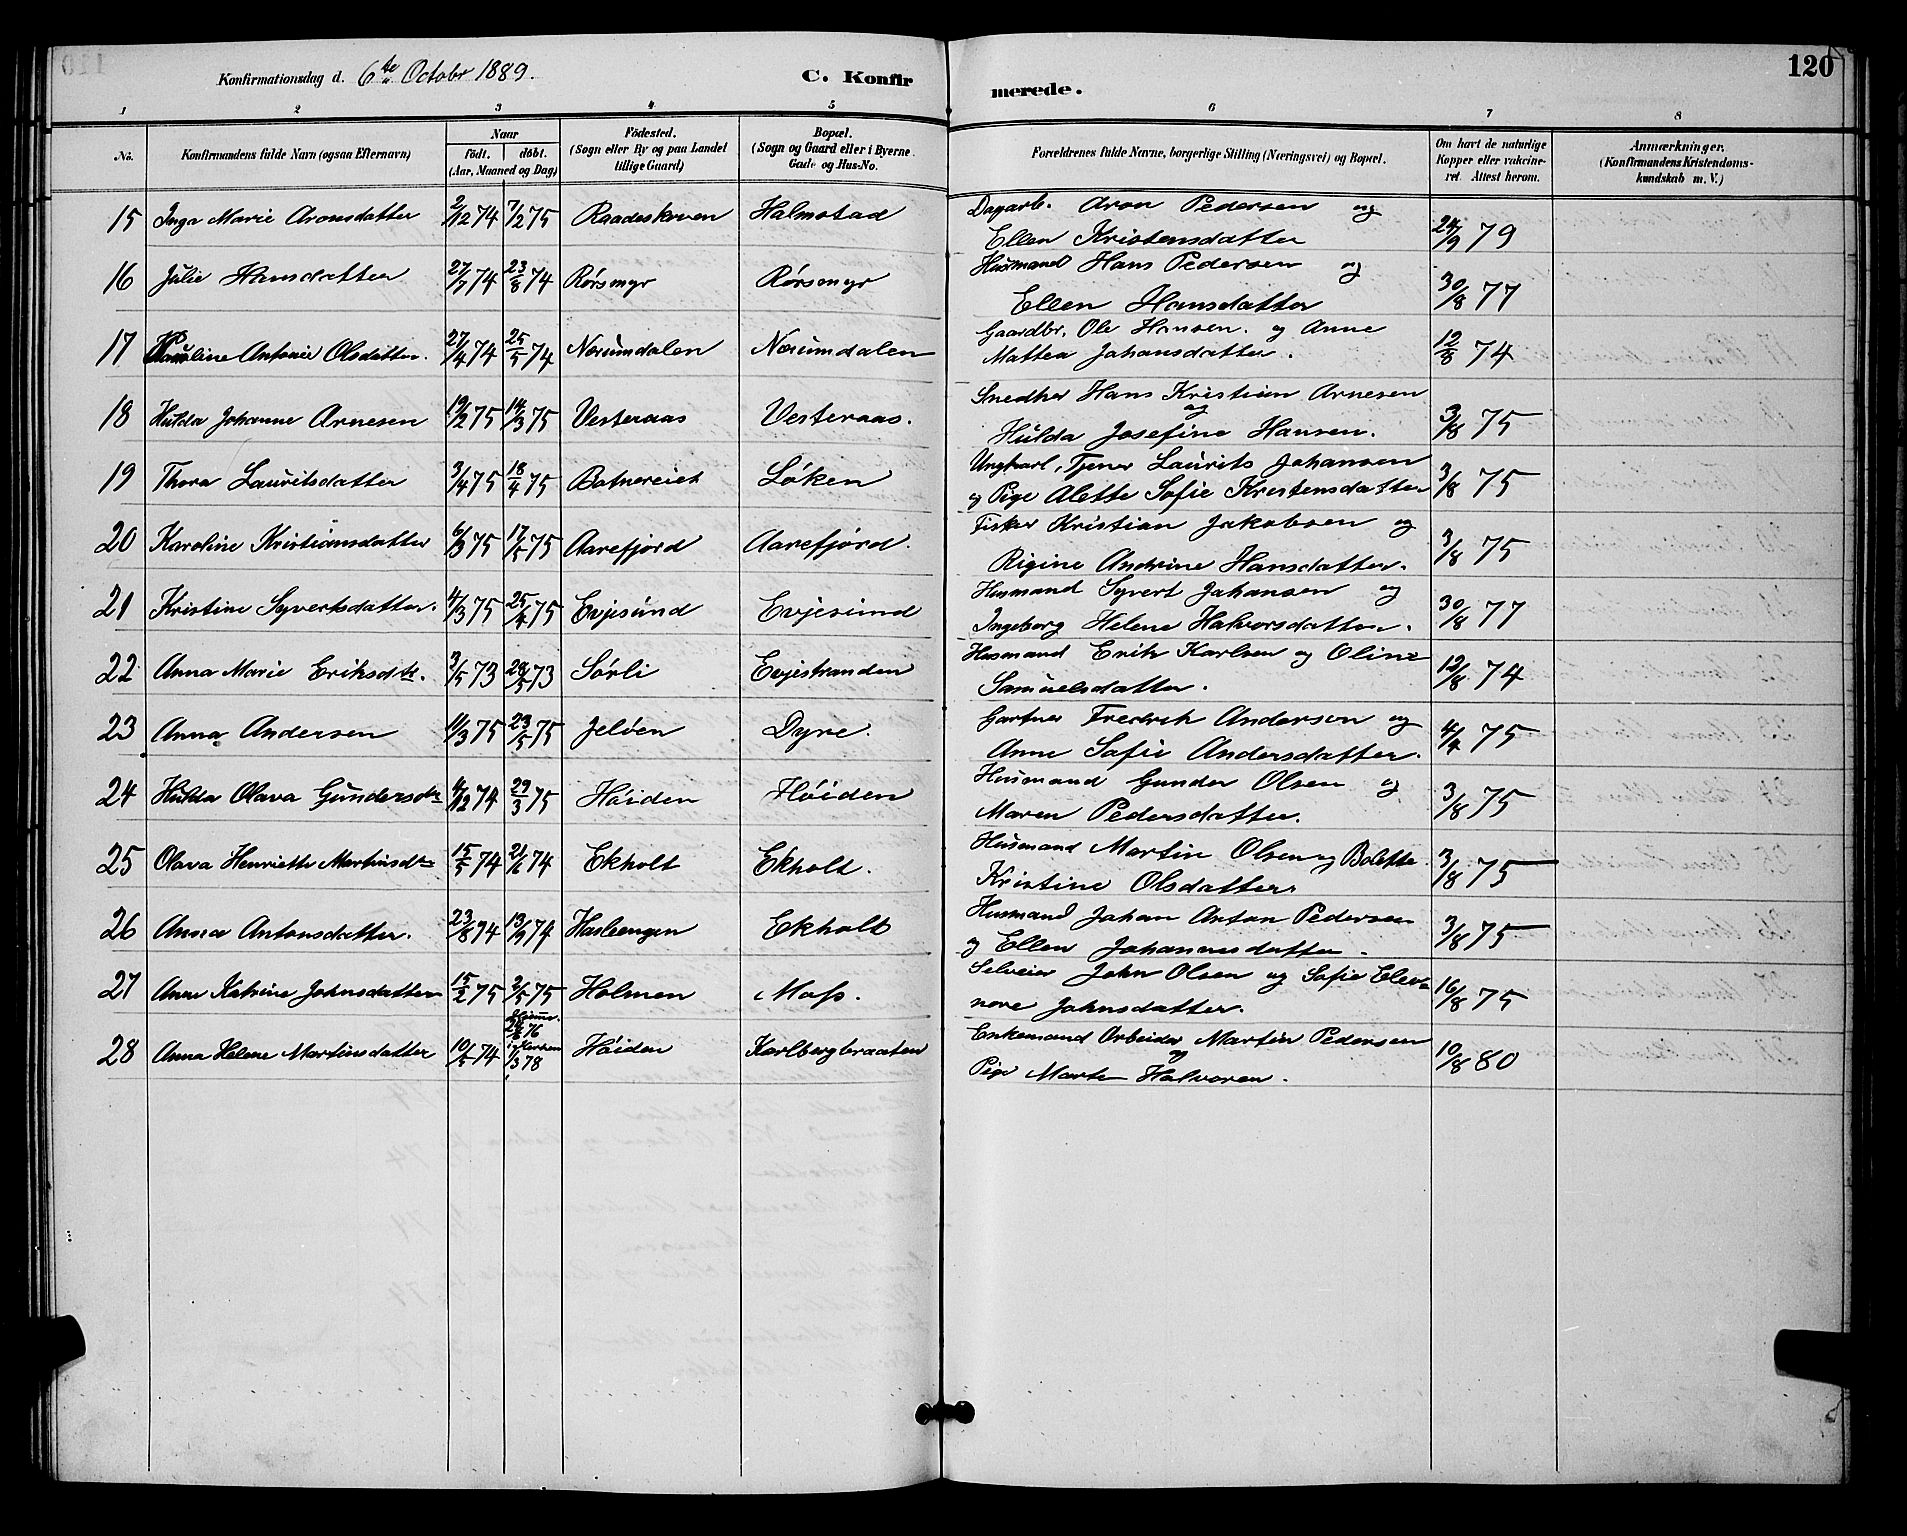 Konfirmationsdag d. 6te Octobr 1889.
C. Konfirmerede.
120
1 2 3 4 5 6 7 8
No.
Konfirmandens fulde Navn (ogsaa Efternavn)
Naar
födt. döbt.
(Aar, Maaned og Dag)
Födested.
(Sogn eller By og paa Landet
tillige Gaard)
Bopæl.
(Sogn og Gaard eller i Byerne
Gade og Hus-No.
Forældrenes fulde Navne, borgerlige Stilling (Næringsvei) og Bopæl.
Om havt de naturlige
Kopper eller vakcine-
ret. Attest herom.
Anmærkninger.
(Konfirmandens Kristendoms-
kundskab m. V.)
15 Inga Marie Aronsdatter 2/12 74 7/2 75 Raadeskrven Halmstad Dagarb. Aron Pedersen og
Ellen Kristensdatter 24/9 79
16 Julie Hansdatter 27/7 74 23/8 74 Rørsmyr Rørsmyr Husmand Hans Pedersen og
Ellen Hansdatter 30/8 77
17 Pauline Antonie Olsdatter. 27/4 74 25/5 74 Norumdalen Norumdalen Gaardbr. Ole Hansen. og Anne
Mattea Johansdatter. 12/8 74
18 Hulda Johanne Arnesen 19/2 75 14/3 75 Vesteraas Vesteraas. Snedker Hans Kristian Arnesen
og
Hulda Josefine Hansen. 3/8 75
19 Thora Lauritsdatter 3/4 75 18/4 75 Botnereiet Løken Ungkarl, Tjener Laurits Johansen
og Pige Alette Sofie Kristensdatter 3/8 75
20 Karoline Kristiansdatter 6/3 75 17/5 75 Aarefjord Aarefjord. Fisker Kristian Jakobsen og
Rigine Andrine Hansdatter. 3/8 75
21 Kristine Syvertsdatter. 4/3 75 25/4 75 Evjesund Evjesund Husmand Syvert Johansen og
Ingeborg Helene Halvorsdatter. 30/8 77
22 Anna Marie Eriksdtr. 3/5 73 28/5 73 Sørli Evjestranden Husmand Erik Karlsen og Oline
Samuelsdatter. 12/8 74
23 Anna Andersen 11/3 75 23/5 75 Jeløen Dyre. Gartner Fredrik Andersen og
Anne Sofie Andersdatter. 4/4 75
24 Hulda Olava Gundersdtr 4/12 74 29/3 75 Höiden Höiden Husmand Gunder Olsen og
Maren Pedersdatter. 3/8 75
25 Olava Henriette Martinsdtr 15/5 74 21/6 74 Ekholt Ekholt. Husmand Martin Olsen og Bolette
Kristine Olsdatter. 3/8 75
26 Anna Antonsdatter. 23/8 74 13/9 74 Haslengen Ekholt Husmand Johan Anton Pedersen
og Ellen Johannesdatter. 3/8 75
27 Anne Katrine Johnsdatter 15/2 75 2/5 75 Holmen Moss. Selveier John Olsen og Sofie Eleo-
nore Johnsdatter. 16/8 75
28 Anna Helene Martinsdatter 10/5 74 Hjemme 24/6 76
i Kirken 1/3 78 Höiden Karlbergbraaten Enkemand Arbeider Martin Pedersen
og
Pige Marte Halvoren. 10/8 80